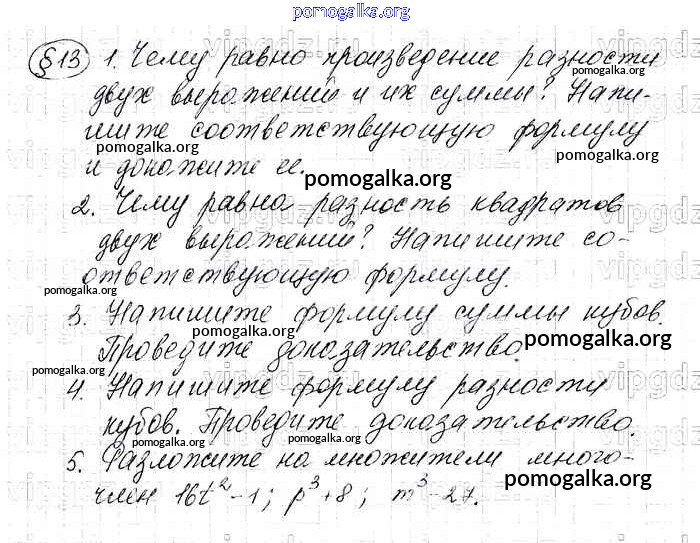 pomogalka.org
§13 1. Чему равно произведение разности
pomogalka.org
двух выражений и их суммы? Напи-
pomogalka.org
шите соответствующую формулу
pomogalka.org
и докажите ее.
pomogalka.org
2. Чему равна разность квадратов
двух выражений? Напишите со-
ответствующую формулу.
pomogalka.org
3. Напишите формулу суммы кубов.
pomogalka.org
pomogalka.org
Проведите доказательство.
pomogalka.org
4. Напишите формулу разности
кубов. Проведите доказательство.
pomogalka.org
pomogalka.org
5. Разложите на множители много-
pomogalka.org
член 16t²-1; p³+8; m³-27.
pomogalka.org